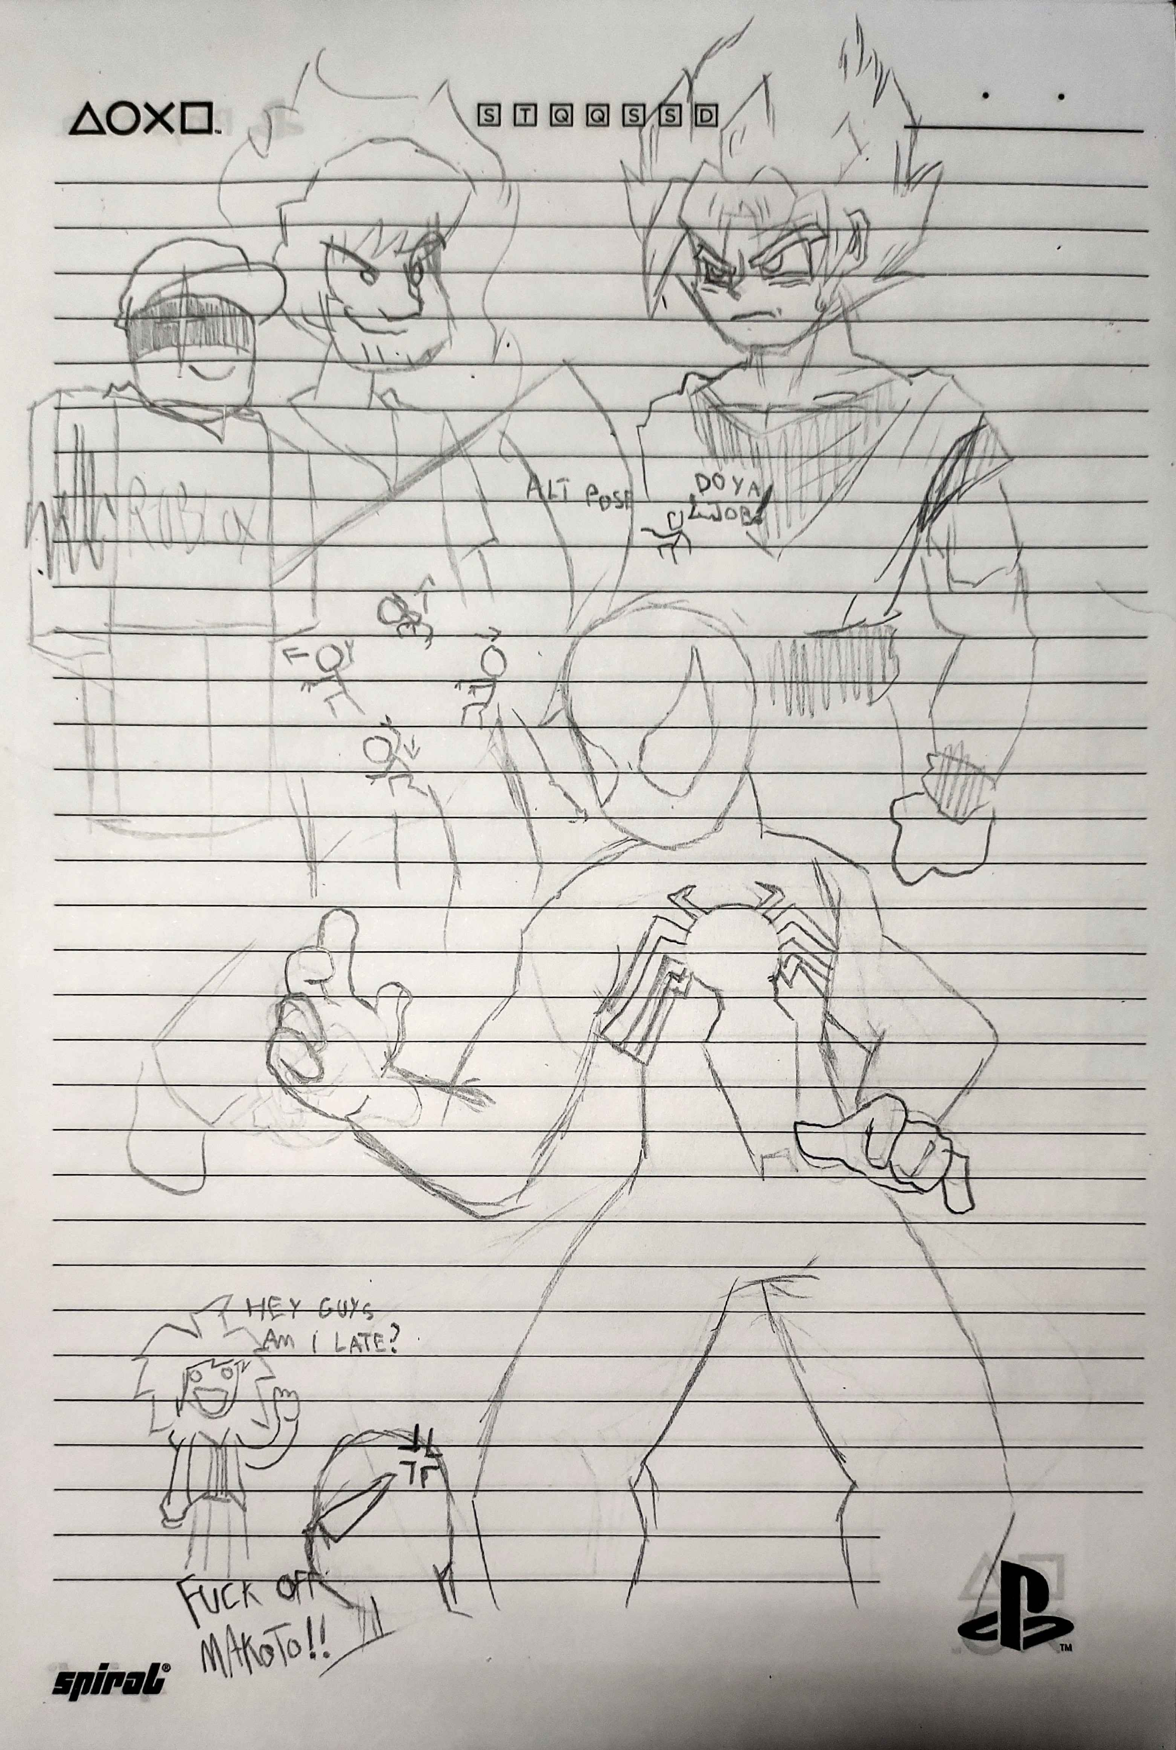 S T Q Q S S D
ROBLOX
ALT POSE
DOYA
HEY GUYS
AM I LATE?
FUCK OFF
MAKOTO!!
spiral®
TM